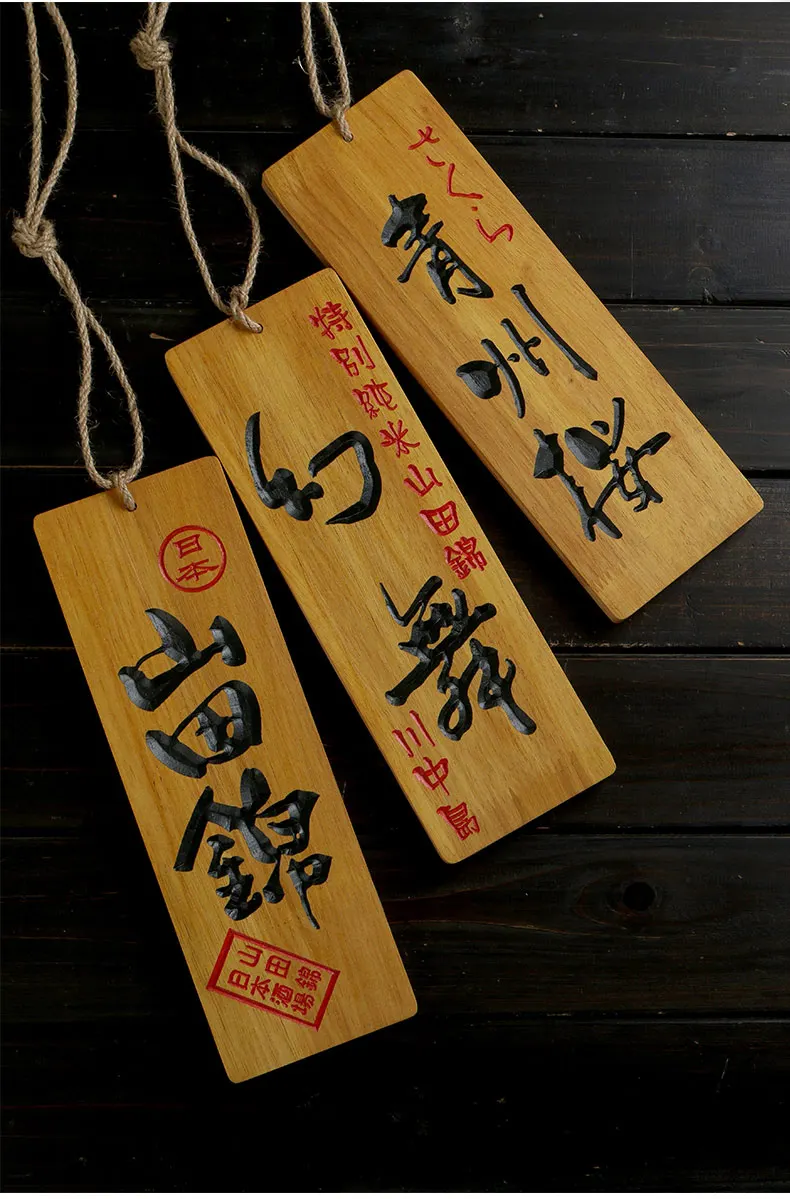 さくら
青州桜
特別純米山田錦
幻舞
川中島
日本
山田錦
山田錦
日本酒場